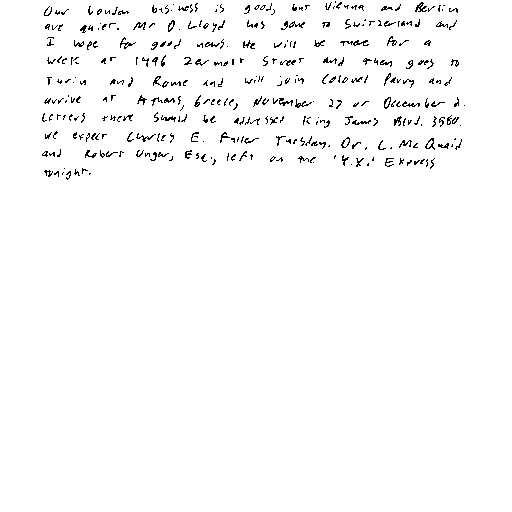 Our London business is good, but Vienna and Berlin
are quiet. Mr D. Lloyd has gone to Switzerland and
I hope for good news. He will be there for a
week at 1496 Zermott Street and then goes to
Turin and Rome and will join Colonel Parry and
arrive at Athans, Greece, November 27 or December 2.
Letters there should be addressed King James Blvd. 3580.
We expect Charles E. Fuller Tuesday. Dr. L. Mc Quaid
and Robert Unger, Esq., left on the 'Y.X.' Express
tonight.